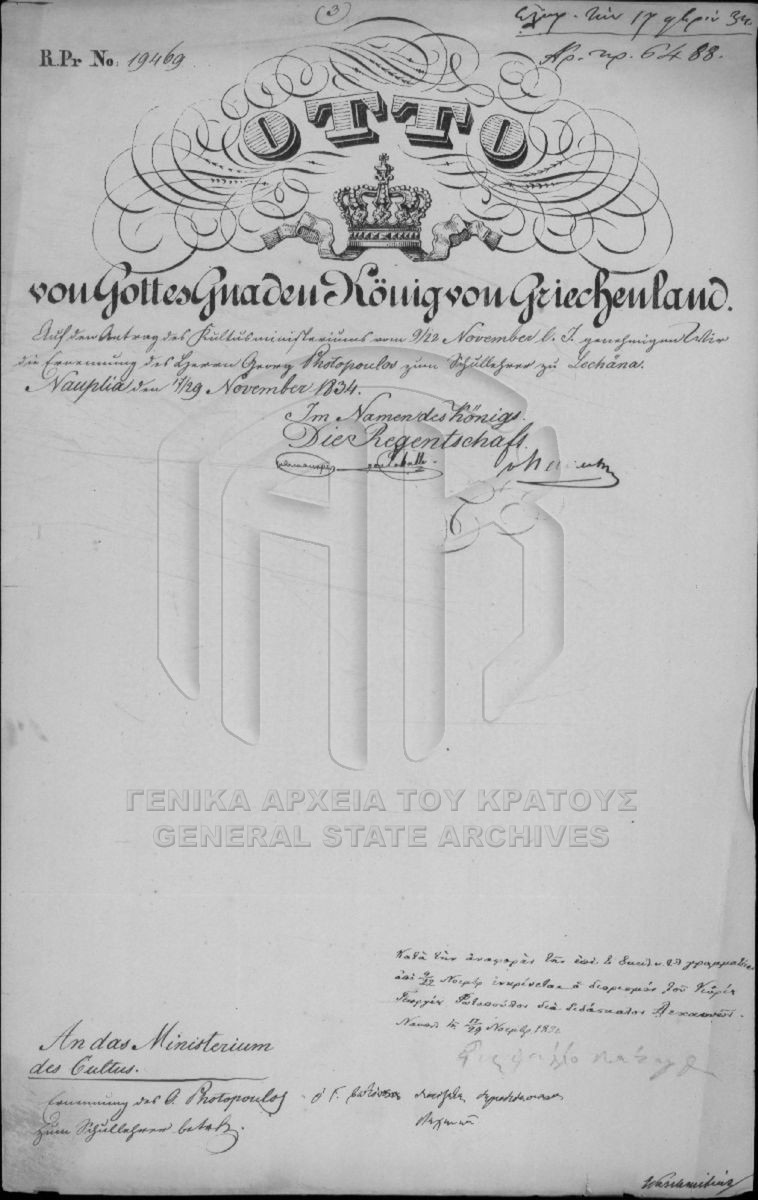 (3)
17
34
R.Pr No: 19469
Αρ. πρ. 6488.
OTTO
von Gottes Gnaden König von Griechenland.
Auf den Antrag des Kultusministeriums vom 9/22 November l. J. genehmigen Wir
die Ernennung des Herrn Georg Photopoulos zum Schullehrer zu Lechäna.
Nauplia den 17/29 November 1834.
Im Namen des Königs.
Die Regentschaft
ΓΕΝΙΚΑ ΑΡΧΕΙΑ ΤΟΥ ΚΡΑΤΟΥΣ
GENERAL STATE ARCHIVES
Κατὰ τὴν ἀναφορὰν τῆς ἐπὶ
ἀπὸ 9/22 Νοεμβρ ἐγκρίνεται ὁ διορισμὸς τοῦ Κυρίου
Γεωργίου Φωτοπούλου διὰ διδάσκαλος
17/29 Νοεμβρ
An das Ministerium
des Cultus.
Ernennung des G. Photopoulos
zum Schullehrer betrf.